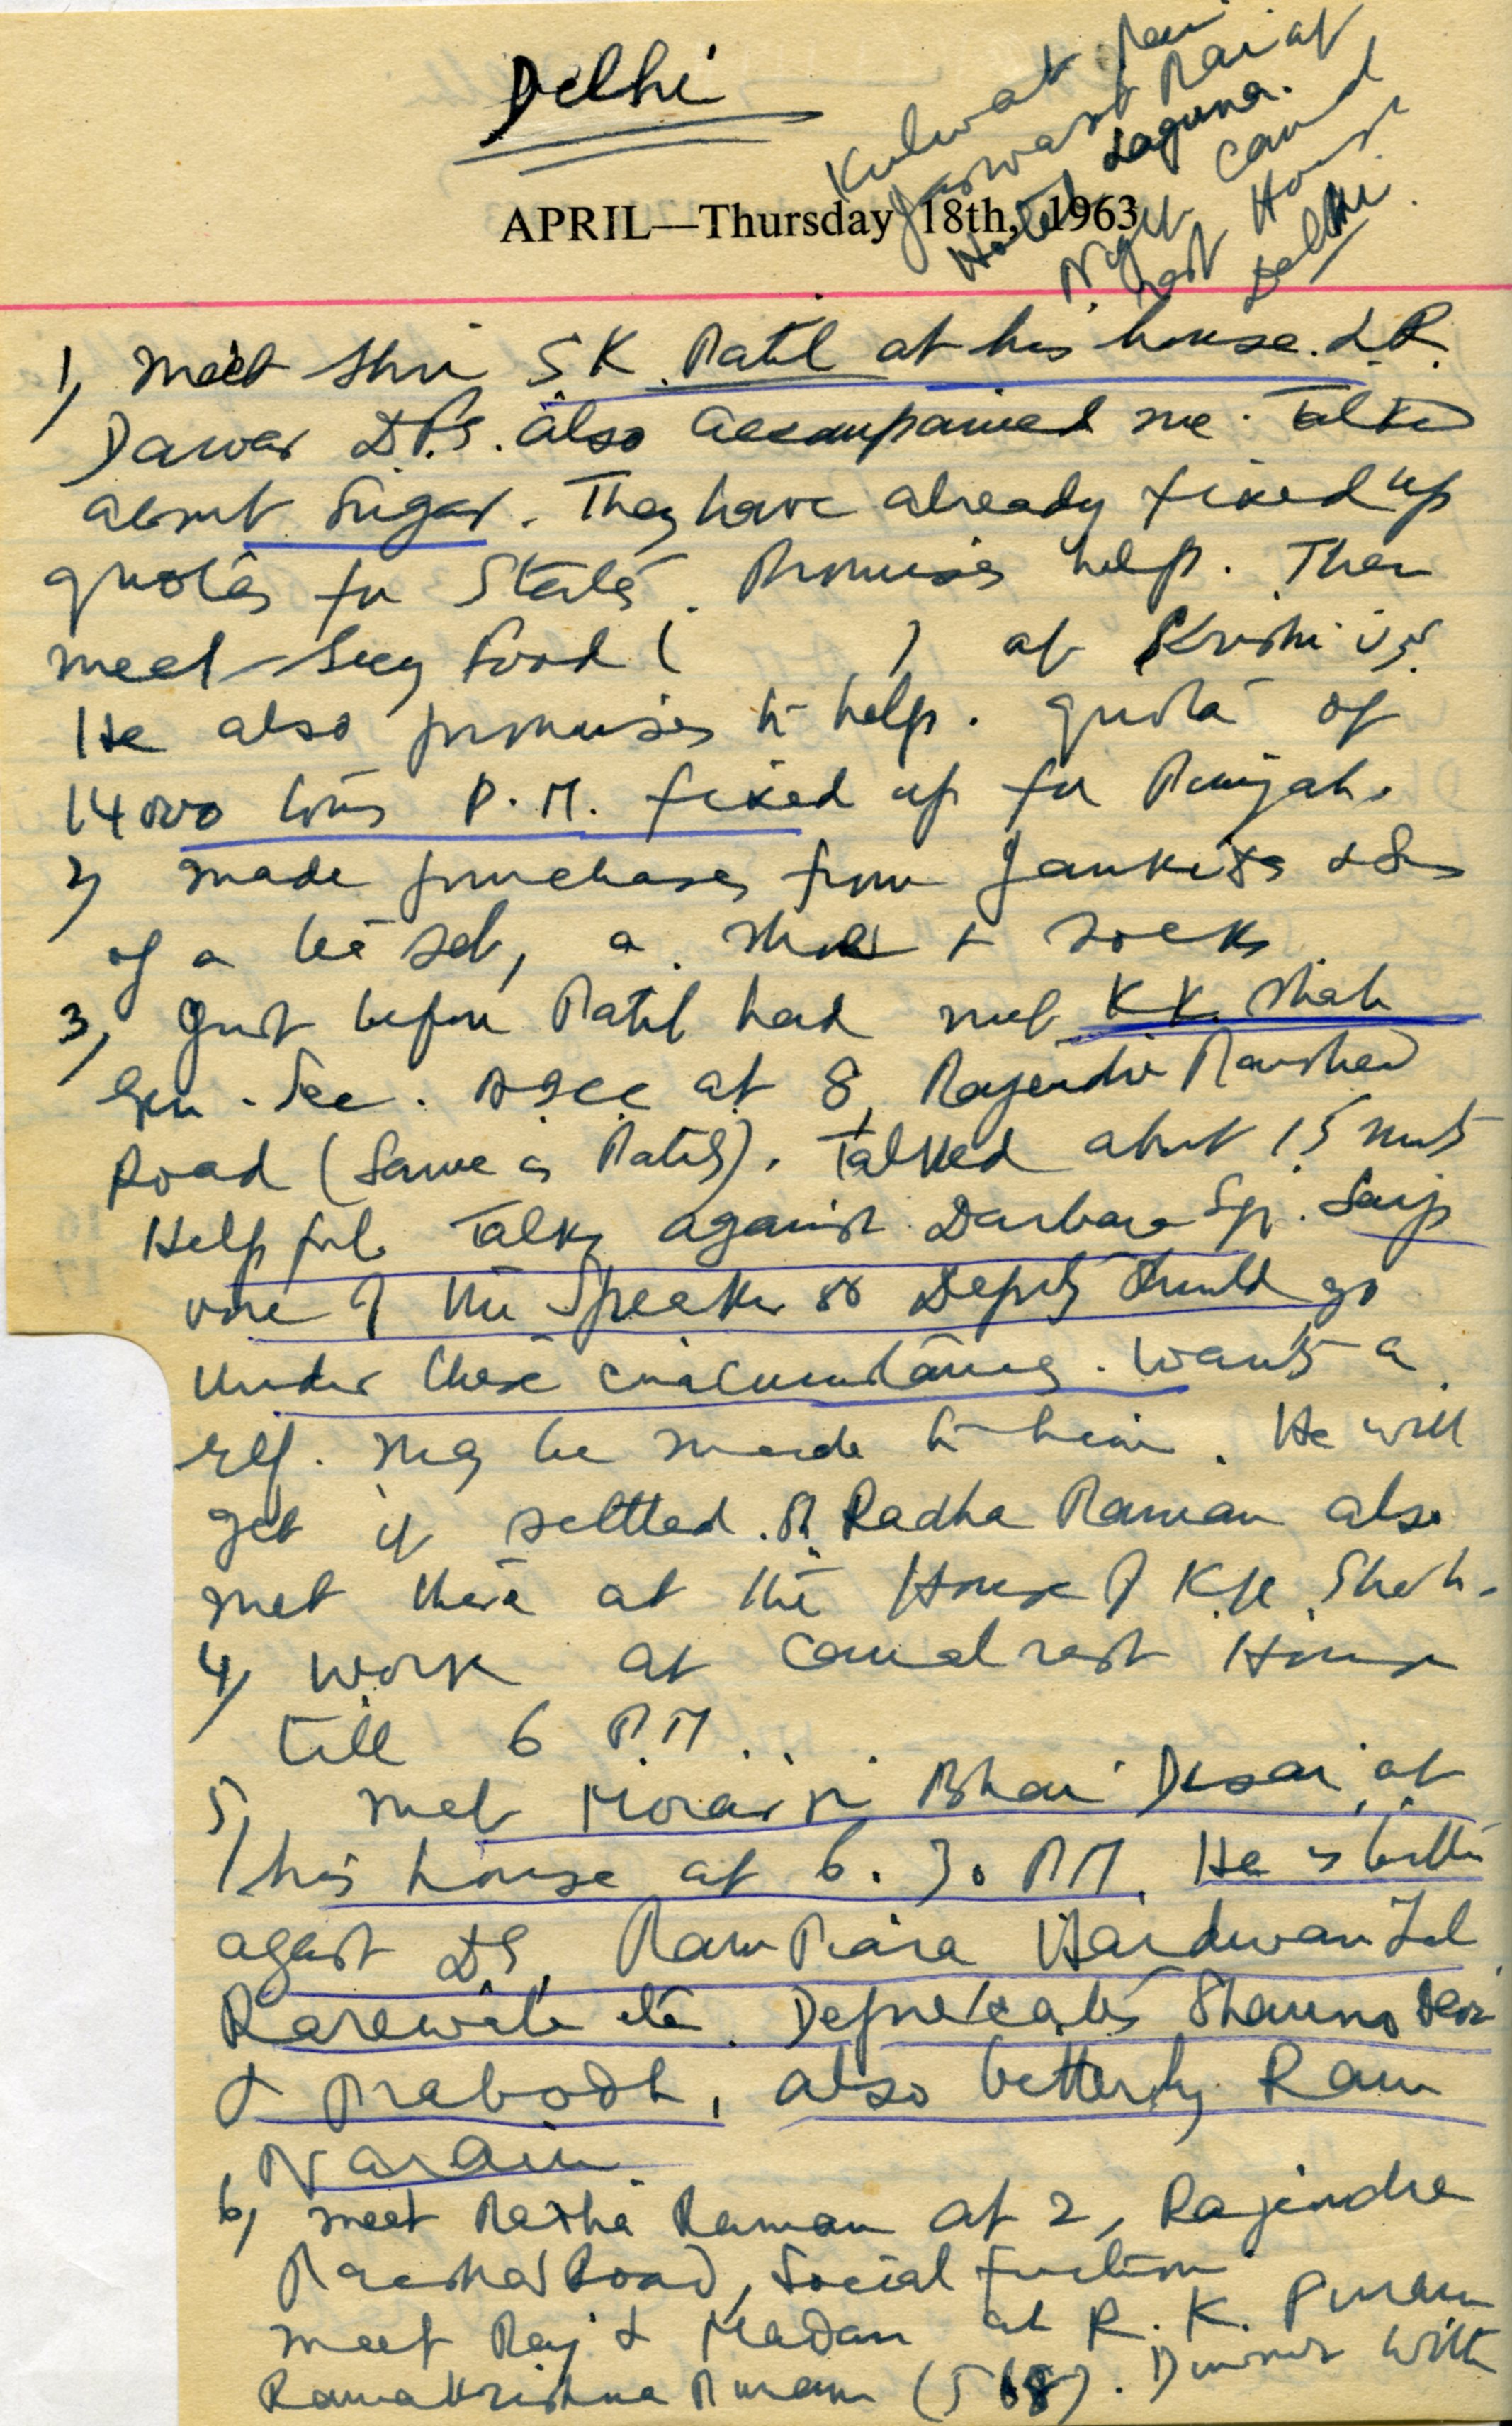 Delhi
Kulwat Rai
Jaswant Rai at
Hotel Laguna.
Night Canal
rest House
Delhi.
APRIL—Thursday 18th, 1963
1, Meet Shri S.K. Patil at his house. L.R.
Dawar D.F.S. also accompanied me. Talked
about Sugar. They have already fixed up
quotas for States. Promises help. Then
meet Secy Food ( ) at Krishi
He also promises to help. quota of
14000 tons P.M. fixed up for Punjab.
2, made purchases from & Sons
of a tea set, a shoes & socks
3, Just before Patil had met K.K. Shah
Gen. Sec. AICC at 8, Rajendra Parshad
Road (Same as Patil's). Talked about 15 mnts
Helpful. Talks against Darbara Sgh. Says
one of the Speaker or Deputy should go
under these circumstances. Wants a
ref. may be made to him. He will
get it settled. Radha Raman also
met there at the House of K.K. Shah.
4, work at Canal rest House
till 6 P.M.
5, met Morarji Bhai Desai at
his house at 6.30 P.M. He is bitter
against D.S. Ram Piara Hardwari Lal
Rarewala etc. Deprecates Shanno Devi
& Prabodh, also bitterly Ram
Narain
6, meet Radha Raman at 2, Rajindra
Parshad Road, Social function
meet Raj & Madan at R. K. Puram
Ramakrishna Puram (568). Dinner with